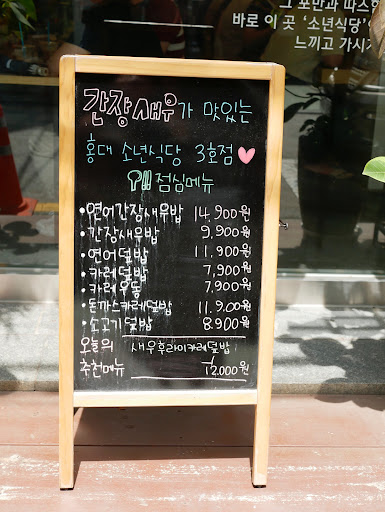 그 포만과 따스한
바로 이 곳 '소년식당'
느끼고 가시
간장새우가 맛있는
홍대 소년식당 3호점
점심메뉴
•연어간장새우밥 14,900원
•간장새우밥 9,900원
•연어덮밥 11,900원
•카레덮밥 7,900원
•카레우동 7,900원
•돈까스카레덮밥 11.9.00원
•소고기덮밥 8.900원
오늘의 추천메뉴 새우후라이카레덮밥
12,000원